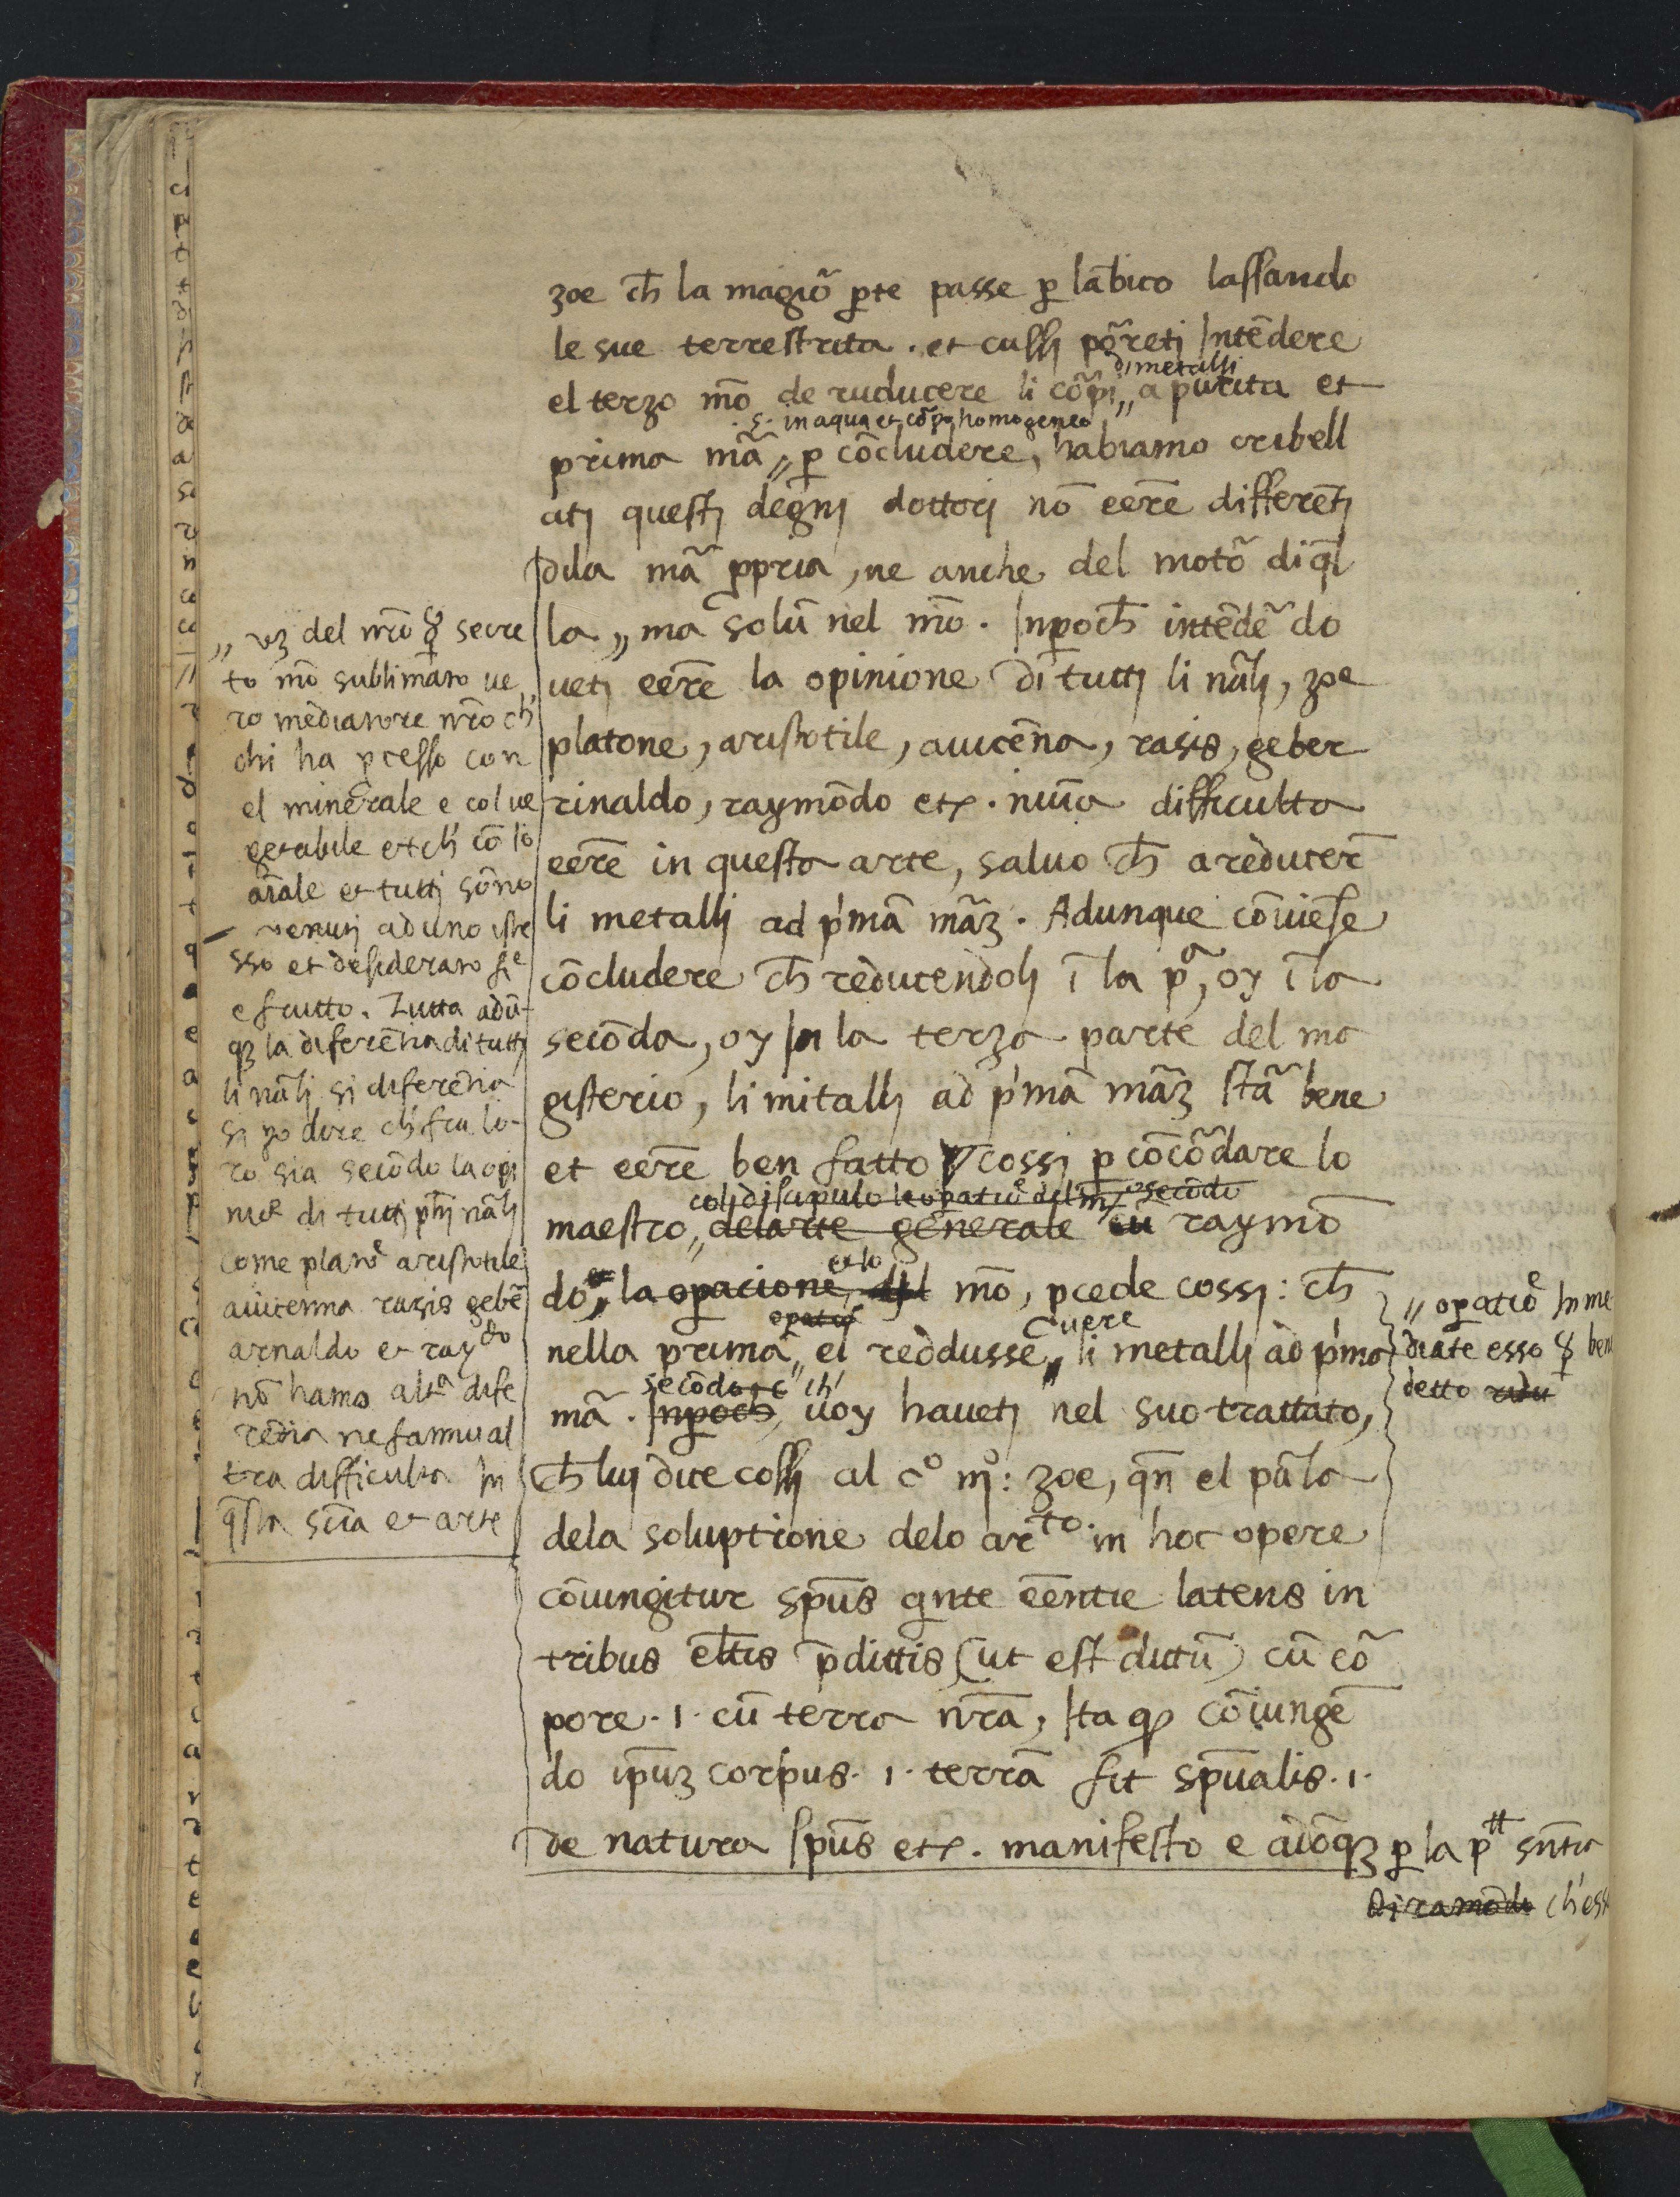 zoe ch̄ la magiō pte passe p lābico lassando
le sue terrestrita . et cussj pōretj Intēdere
di metallj
el terzo mō de ruducere li cōrpi „ a purita et
.s. in aqua et cōpo homogeneo
prima mā „ p cōcludere, habiamo cribell
atj questj degnj dottorj nō eere differētj
dila mā ppria, ne anche del motō di q̄l
la „ ma solū nel mō . Inpoch̄ intēdē do
uetj eerē la opinione di tuttj li nālj, zoe
platone, aristotile, auicēna, rasis, geber
rinaldo, raymōdo etc . nulla difficulta
eerē in questa arte, saluo ch̄ a reducerē
li metallj ad p'mā māz . Adunque cōuiese
cōcludere ch̄ reducendolj ī la pª, oy ī la
secōda, oy In la terza parte del ma
gisterio, li mitallj ad p'mā māz stā bene
et eerē ben fatto cossj p cōcōdare lo
colj discipulo la opatiōe del mº secōdo
maestro „ delarte gēnerale raymō
et lo
do, la opacione, del mō, pcede cossj : ch̄
opatiōe uere
nella prima „ el reddusse „ li metallj ad p'ma
secōdo ch'
mā . Inpoch̄, uoy hauetj nel suo trattato,
ch̄ luj dice cossj al cº mº : zoe, qn̄ el pāla
dela soluptione delo arᵗᵒ. in hoc opere
cōiungitur spūs qnte eēntie latens in
tribus eltīs p̄dittis (ut est dictū) cū cō
pore . 1 . cū terra nrā, Ita q cōiungē
do ipūz corpus . 1 . terrā fit spūalis . 1 .
de natura spūs etc . manifesto e adōqz p la pᵗᵗ sn̄tia
di ramōdo ch'ess
„ uz del nrō secre
to mō sublimaro ue
ro mediatore nrō ch'
chi ha pcesso con
el minērale e col ue
getabile et ch' cō lo
aīale et tuttj sōno
uenutj ad uno iste
sso et desiderato fiᵉ
e frutto . Tutta adū
qz la diferētia di tuttj
li nālj si diferētia
si po dire ch' fra lo-
ro sia secōdo la opi
niōe di tuttj phj nālj
come platōe aristotile
auicenna razis gebē
arnaldo et rayᵈᵒ
nō hano altª dife
rētia ne fannu al
tra difficulta In
q̄sta scīa et arte
„ opatiōe In me
diate esso ben
detto